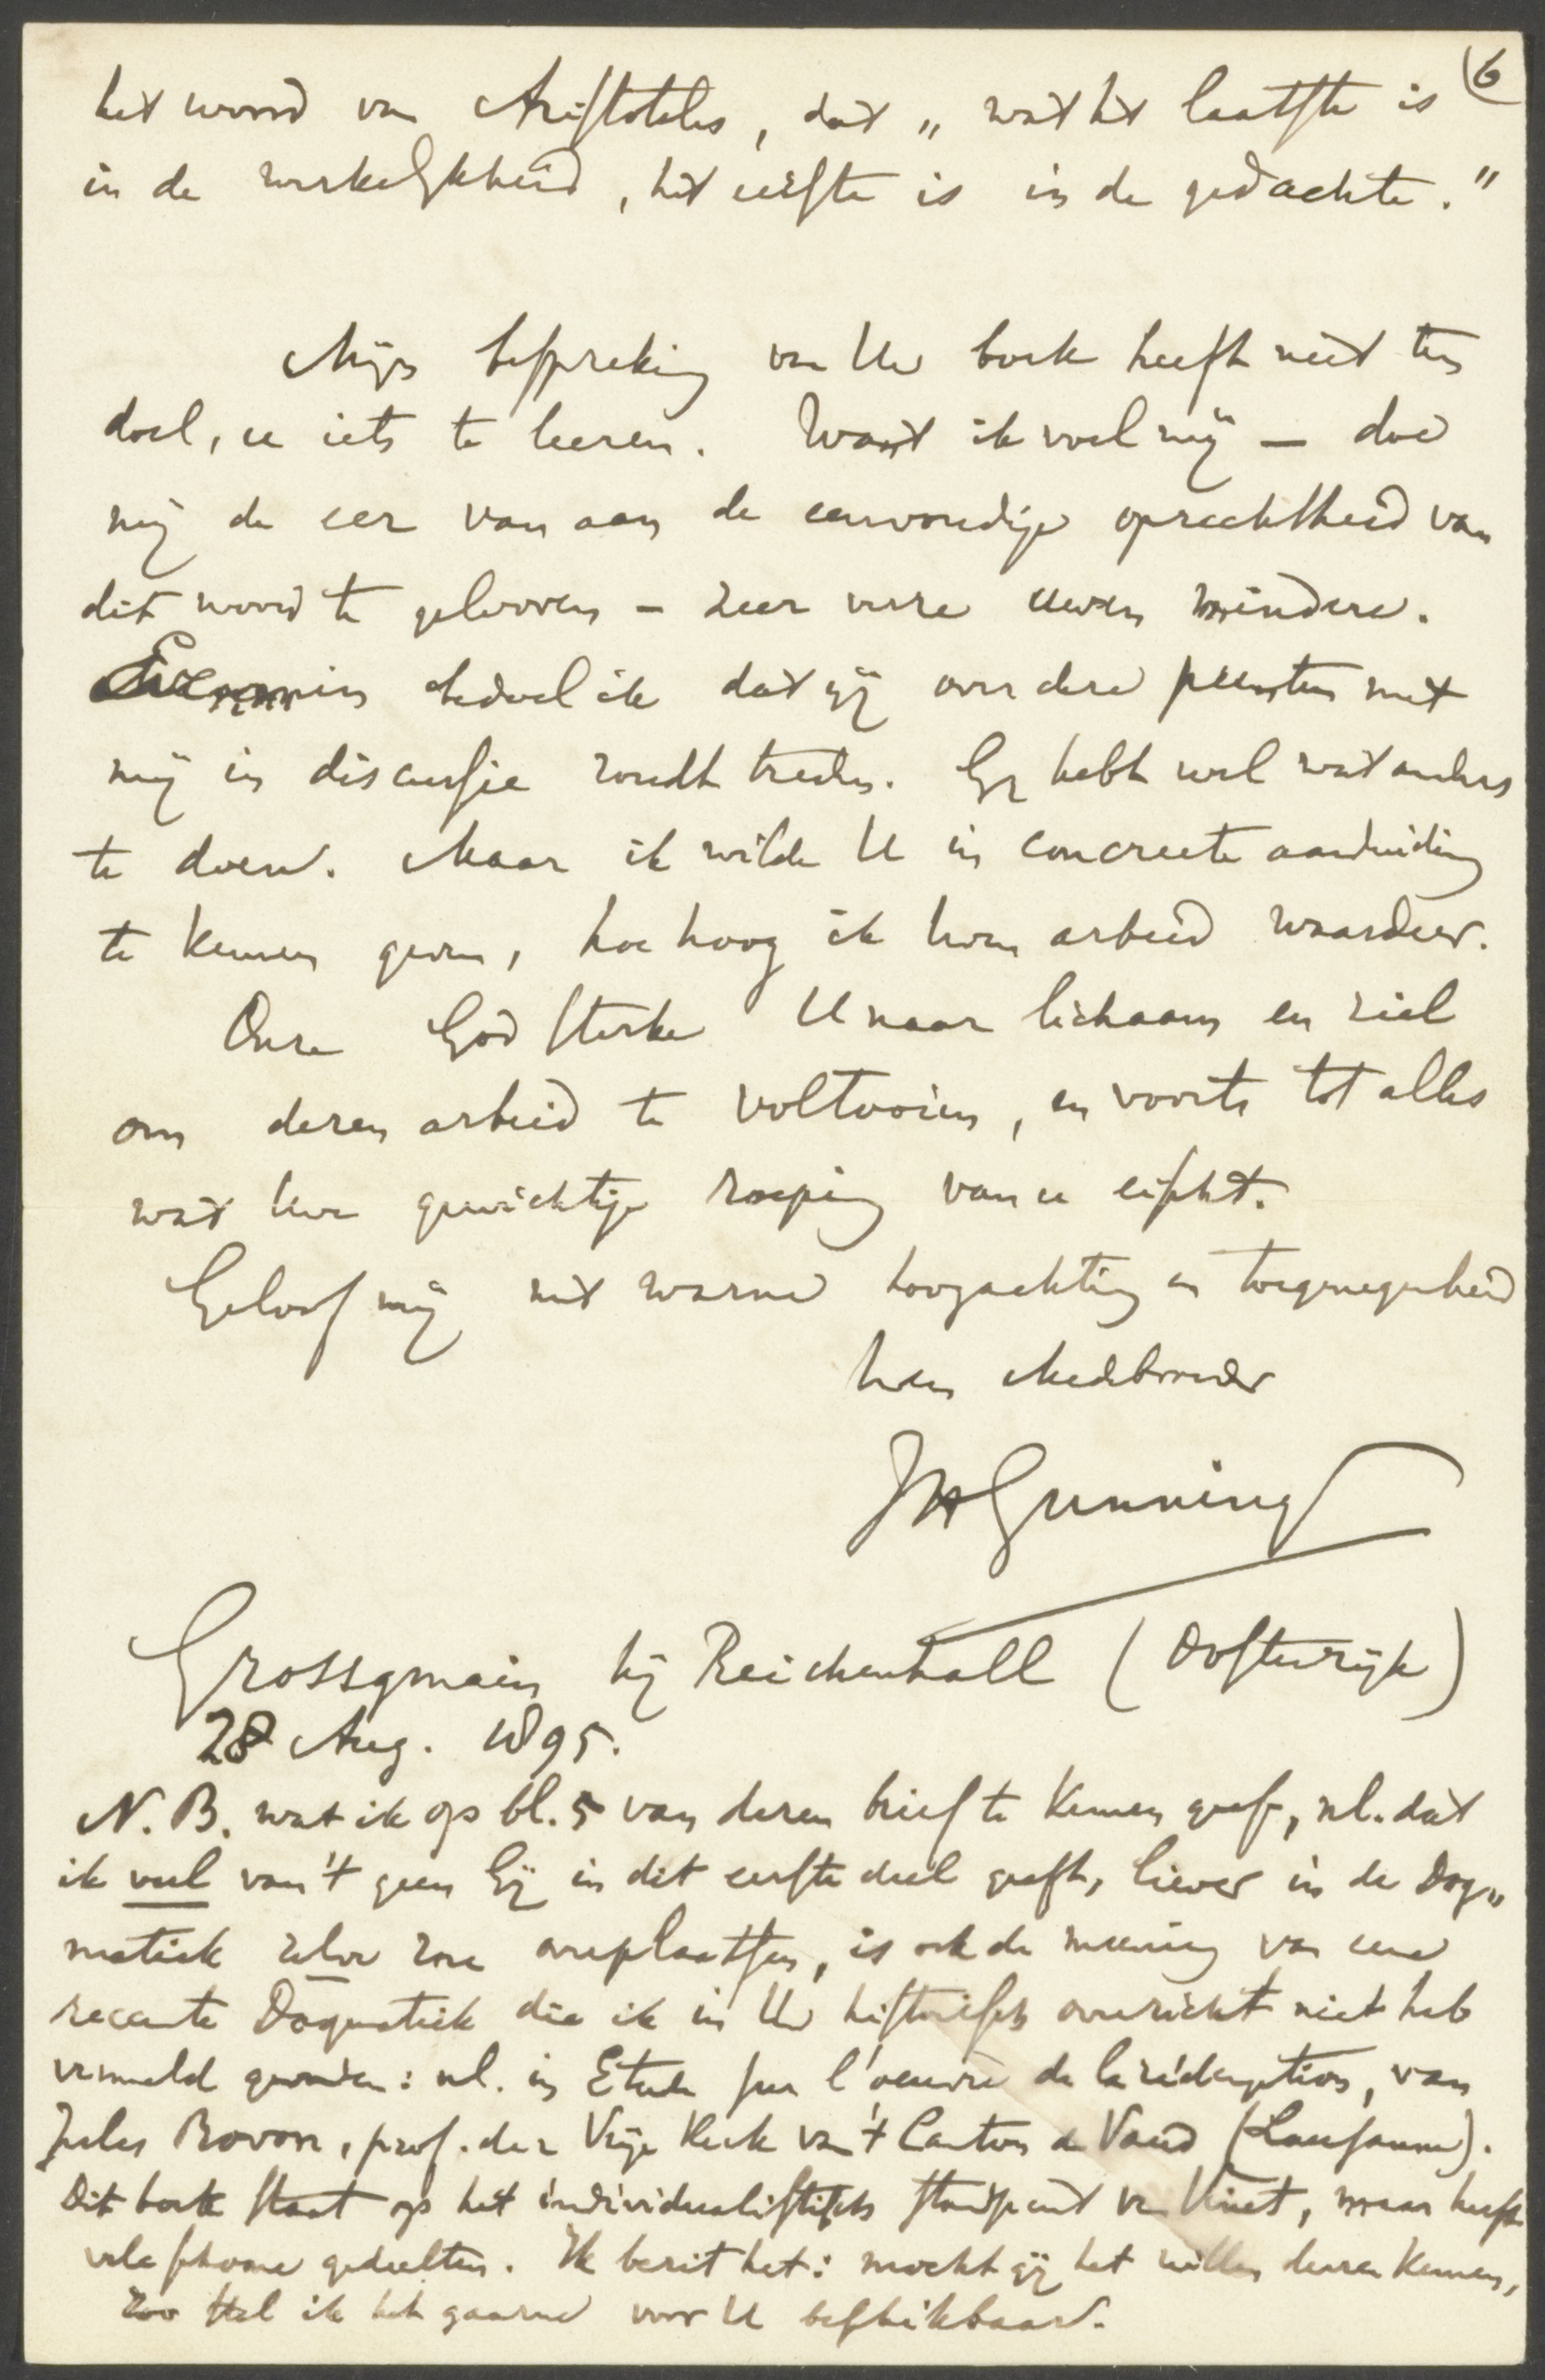 6
het woord van Aristoteles, dat „wat het laatste is
in de werkelijkheid, het eerste is in de gedachte."
Mijn bespreking van Uw boek heeft niet ten
doel, u iets te leeren. Want ik voel mij — doe
mij de eer van aan de eenvoudige oprechtheid van
dit woord te gelooven — zeer verre uwen mindere.
Evenmin bedoel ik dat gij over deze punten met
mij in discussie zoudt treden. Gij hebt wel wat anders
te doen. Maar ik wilde U in concreete aanduiding
te kennen geven, hoe hoog ik Uwen arbeid waardeer.
Onze God sterke U naar lichaam en ziel
om dezen arbeid te voltooien, en voorts tot alles
wat Uwe gewichtige roeping van u eischt.
Geloof mij met warme hoogachting en toegenegenheid
Uwen Medebroeder
JHGunning
Grossgmain bij Reichenhall (Oostenrijk)
28 Aug. 1895.
N.B. wat ik op bl. 5 van dezen brief te kennen geef, nl. dat
ik veel van 't geen Gij in dit eerste deel geeft, liever in de Dog„
matiek zelve zou overplaatsen, is ook de meening van eene
recente Dogmatiek die ik in Uw historisch overzicht niet heb
vermeld gevonden: nl. in Etude sur l'oeuvre de la rédemption, van
Jules Bovon, prof. der Vrije Kerk van 't Canton de Vaud (Lausanne).
Dit boek staat op het individualistisch standpunt van Vinet, maar heeft
vele schoone gedeelten. Ik bezit het: mocht gij het willen leeren kennen,
zoo stel ik het gaarne voor U beschikbaar.